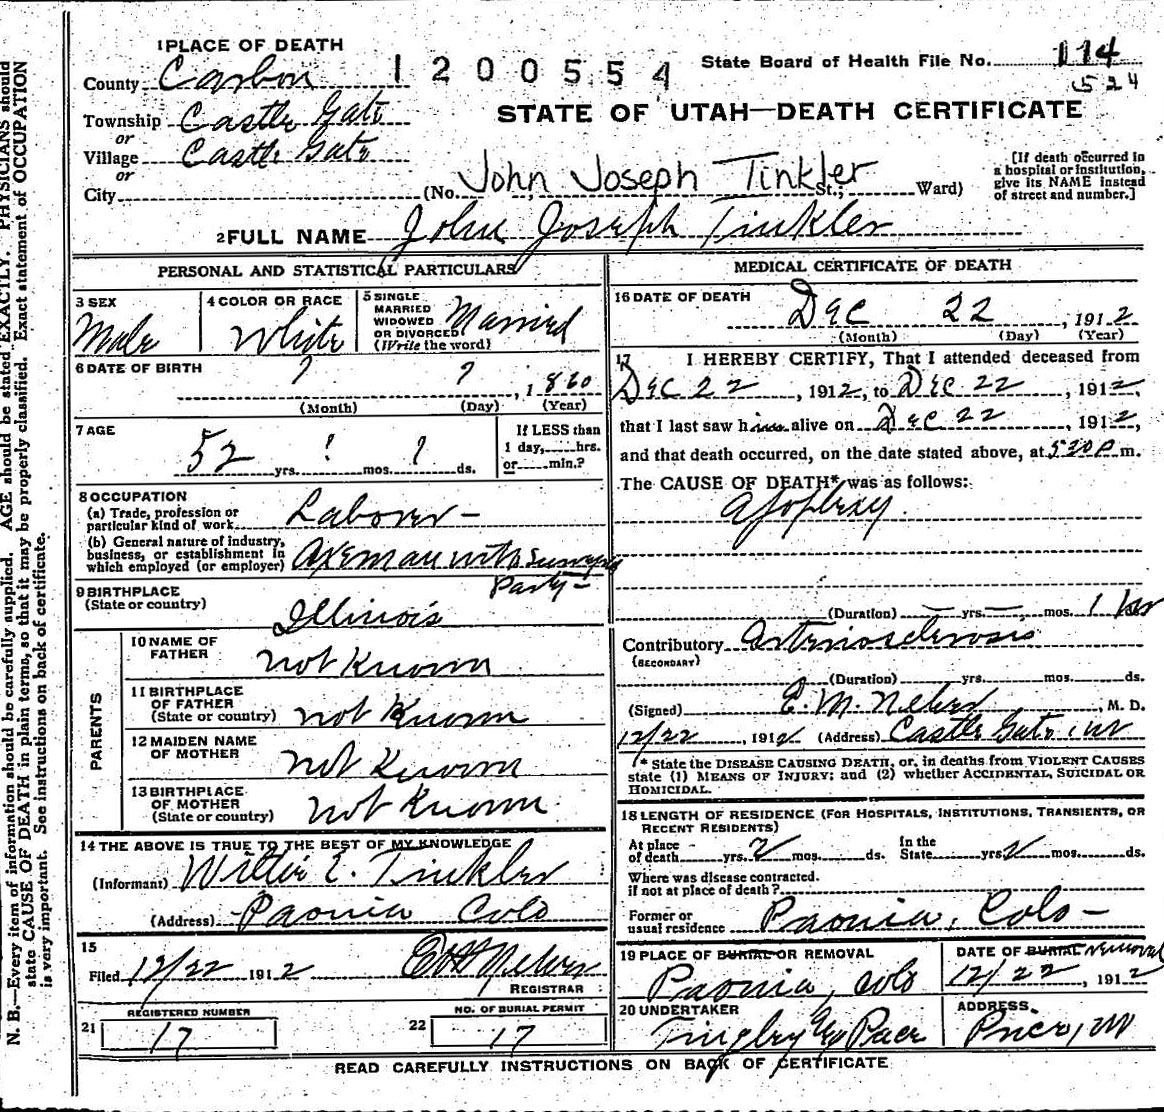 1 PLACE OF DEATH
County Carbon
1200554
State Board of Health File No. 114
524
Township Castle Gate
or
Village Castle Gate
or
City
STATE OF UTAH—DEATH CERTIFICATE
(No. John Joseph Tinkler St.; Ward)
[If death occurred in
a hospital or institution,
give its NAME instead
of street and number.]
2 FULL NAME John Joseph Tinkler
PERSONAL AND STATISTICAL PARTICULARS
3 SEX
Male
4 COLOR OR RACE
White
5 SINGLE
MARRIED
WIDOWED
OR DIVORCED
(Write the word)
Married
6 DATE OF BIRTH
? ? , 1860
(Month) (Day) (Year)
7 AGE
52 yrs. ? mos. ? ds.
If LESS than
1 day,......hrs.
or......min.?
8 OCCUPATION
(a) Trade, profession or
particular kind of work Laborer -
(b) General nature of industry,
business, or establishment in
which employed (or employer) Axeman with Surveying
Party -
9 BIRTHPLACE
(State or country)
Illinois
PARENTS
10 NAME OF
FATHER
not Known
11 BIRTHPLACE
OF FATHER
(State or country) not Known
12 MAIDEN NAME
OF MOTHER
not Known
13 BIRTHPLACE
OF MOTHER
(State or country) not Known
14 THE ABOVE IS TRUE TO THE BEST OF MY KNOWLEDGE
(Informant) Willie E. Tinkler
(Address) Paonia Colo
15
Filed 12/22 1912
REGISTRAR
REGISTERED NUMBER
21 17
NO. OF BURIAL PERMIT
22 17
MEDICAL CERTIFICATE OF DEATH
16 DATE OF DEATH
Dec 22, 1912
(Month) (Day) (Year)
17 I HEREBY CERTIFY, That I attended deceased from
Dec 22, 1912, to Dec 22, 1912,
that I last saw him alive on Dec 22, 1912,
and that death occurred, on the date stated above, at 530 P m.
The CAUSE OF DEATH* was as follows:
Apoplexy
(Duration) — yrs. — mos. 1 hr
Contributory Arteriosclerosis
(SECONDARY)
(Duration) yrs. mos. ds.
(Signed) E. M. , M. D.
12/22, 1912 (Address) Castle Gate, Ut
* State the DISEASE CAUSING DEATH, or, in deaths from VIOLENT CAUSES
state (1) MEANS OF INJURY; and (2) whether ACCIDENTAL, SUICIDAL OR
HOMICIDAL.
18 LENGTH OF RESIDENCE (FOR HOSPITALS, INSTITUTIONS, TRANSIENTS, OR
RECENT RESIDENTS)
At place
of death yrs. 2 mos. ds.
In the
State yrs. 2 mos. ds.
Where was disease contracted.
if not at place of death?
Former or
usual residence Paonia, Colo -
19 PLACE OF BURIAL OR REMOVAL
Paonia, Colo
DATE OF BURIAL Removal
12/22, 1912
20 UNDERTAKER
ADDRESS.
READ CAREFULLY INSTRUCTIONS ON BACK OF CERTIFICATE
N. B.—Every item of information should be carefully supplied. AGE should be stated EXACTLY. PHYSICIANS should
state CAUSE OF DEATH in plain terms, so that it may be properly classified. Exact statement of OCCUPATION
is very important. See instructions on back of certificate.